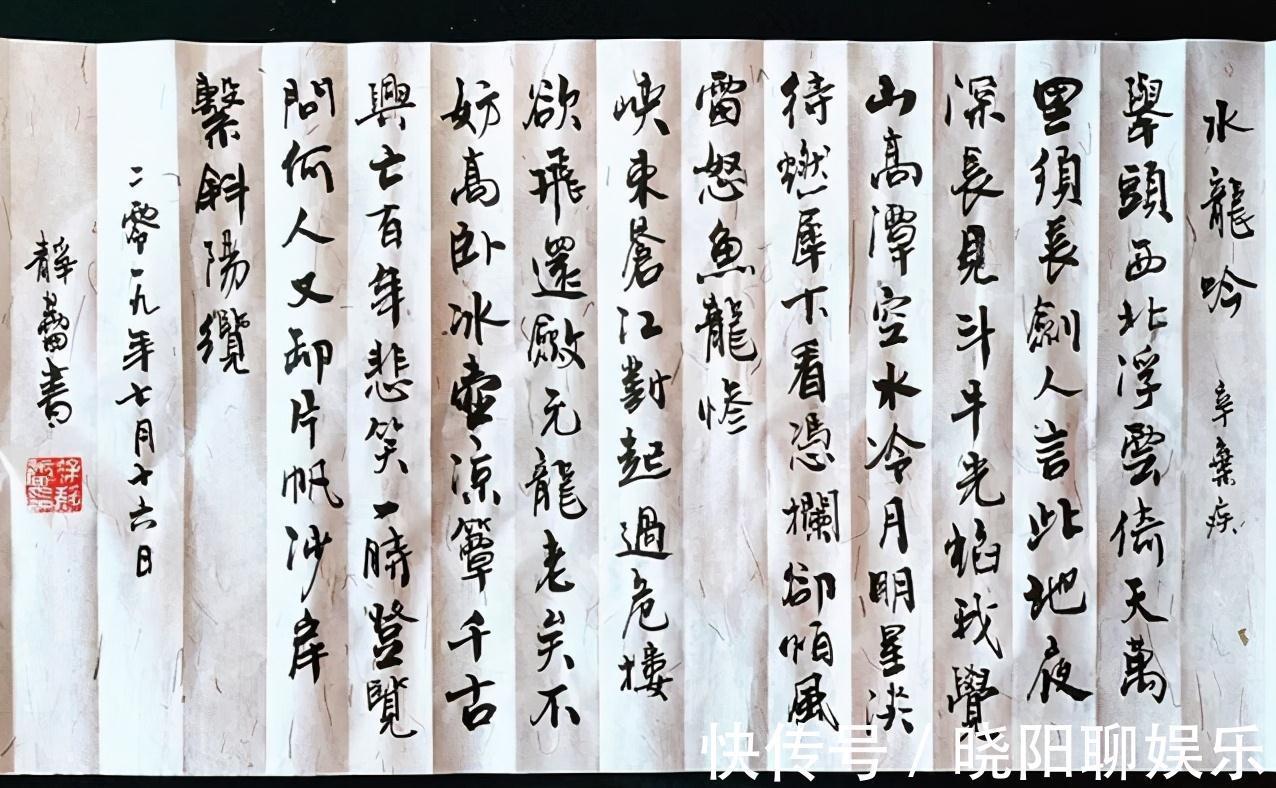 水龍吟 辛棄疾
舉頭西北浮雲倚天萬
里須長劍人言此地夜
深長見斗牛光焰我覺
山高潭空水冷月明星淡
待燃犀下看憑欄卻怕風
雷怒魚龍慘
峽束蒼江對起過危樓
欲飛還斂元龍老矣不
妨高臥冰壺涼簟千古
興亡百年悲笑一時登覽
問何人又卸片帆沙岸
繫斜陽纜
二零一九年七月十六日
靜蕾書
快传号 / 晓阳聊娱乐